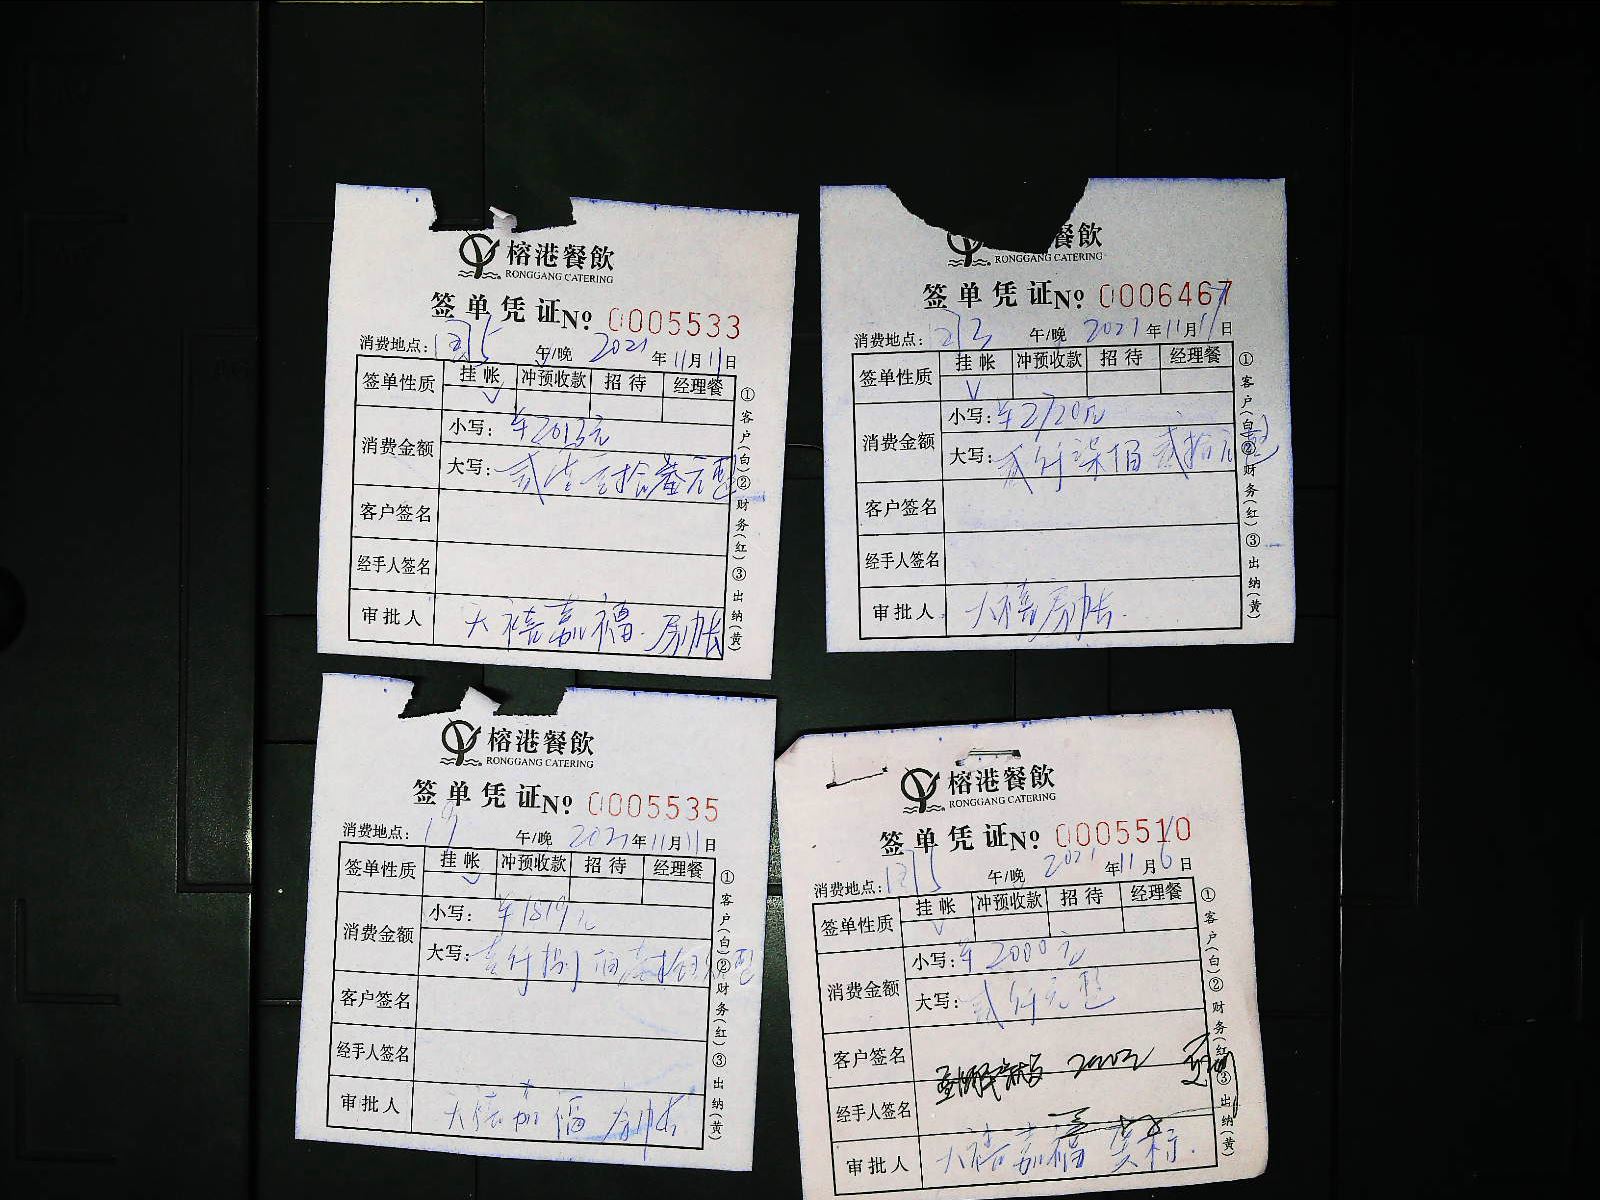 榕港餐飲
RONGGANG CATERING
签单凭证№ 0005533
消费地点: 午/晚 2021年11月11日
签单性质 挂帐 冲预收款 招待 经理餐
消费金额 小写: ¥2013元
大写: 贰仟零拾叁元整
客户签名
经手人签名
审批人 大禧嘉福.房帐
①客户(白)②财务(红)③出纳(黄)
餐飲
RONGGANG CATERING
签单凭证№ 0006467
消费地点: 午/晚 2021年11月17日
签单性质 挂帐 冲预收款 招待 经理餐
消费金额 小写: ¥2720元
大写: 贰仟柒佰贰拾元整
客户签名
经手人签名
审批人 大禧房帐.
①客户(白)②财务(红)③出纳(黄)
榕港餐飲
RONGGANG CATERING
签单凭证№ 0005535
消费地点: 19 午/晚 2021年11月11日
签单性质 挂帐 冲预收款 招待 经理餐
消费金额 小写: ¥1819元
大写: 壹仟捌佰壹拾玖元整
客户签名
经手人签名
审批人 大禧嘉福房帐
①客户(白)②财务(红)③出纳(黄)
榕港餐飲
RONGGANG CATERING
签单凭证№ 0005510
消费地点: 午/晚 2021年11月6日
签单性质 挂帐 冲预收款 招待 经理餐
消费金额 小写: ¥2000元
大写: 贰仟元整
客户签名
经手人签名
审批人 大禧嘉福
①客户(白)②财务(红)③出纳(黄)